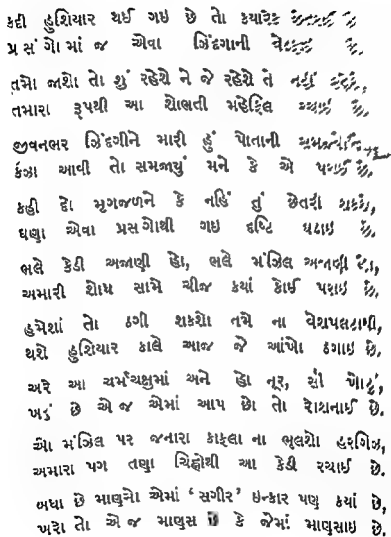 કદી હુશિયાર થઈ ગઇ છે તેા કયારેક
પ્રસંગેામાં જ એવા ઝિંદગાની
તમે જાશેા તેા શું રહેશે ને જે રહેશે તે નહીં
તમારા રૂપથી આ શેાભતી મહેફિલ
જીવનભર ઝિંદગીને મારી હું પેાતાની
કઝા આવી તેા સમજાયું મને કે એ પરાઈ છે.
કહી દેા મૃગજળને કે નહિં તું છેતરી શકશે,
ઘણા એવા પ્રસગેાથી ગઇ દ્દષ્ટિ ઘઢાઇ છે.
ભલે કેડી અજાણી હેા, ભલે મંઝિલ અજાણી
અમારી શેાધ સામે ચીજ કયાં કેાઈ પરાઇ છે.
હમેશાં તેા ઠગી શકશેા તમે ના વેશપલટાથી,
થશે હુશિયાર કાલે આજ જે આંખેા ઠગાઇ છે.
અરે આ ચર્મચક્ષુમાં અને હેા નૂર, સૌ ખેાટું,
ખરૂં છે એ જ એમાં આપ છેા તેા રેાશનાઈ છે.
એા મંઝિલ પર જનારા કાફલા ના ભૂલશેા હરગિઝ,
અમારા પગ તણા ચિહ્નોથી આ કેડી રચાઈ છે.
બધા છે માણસેા એમાં ‘સગીર’ ઇન્કાર પણ કયાં છે,
ખરેા તેા એ જ માણસ છે કે જેમાં માણસાઇ છે.